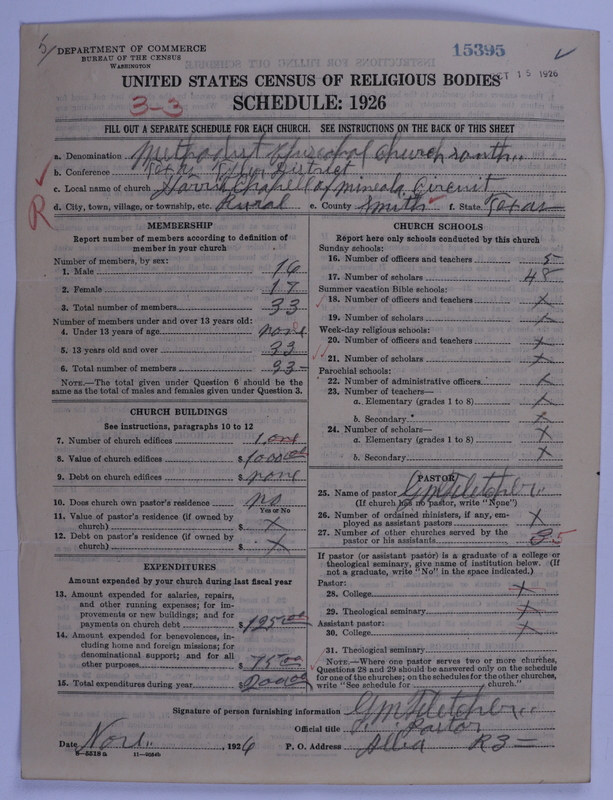 DEPARTMENT OF COMMERCE
BUREAU OF THE CENSUS
WASHINGTON
15395
15 1926
UNITED STATES CENSUS OF RELIGIOUS BODIES
3-3
SCHEDULE: 1926
FILL OUT A SEPARATE SCHEDULE FOR EACH CHURCH. SEE INSTRUCTIONS ON THE BACK OF THIS SHEET
a. Denomination Methodist Episcopal Church South
b. Conference Tyler District
c. Local name of church Chapel of Mineola Circuit
R
d. City, town, village, or township, etc. Rural e. County Smith f. State Texas
MEMBERSHIP
Report number of members according to definition of member in your church
Number of members, by sex:
1. Male 16
2. Female 17
3. Total number of members 33
Number of members under and over 13 years old:
4. Under 13 years of age none
5. 13 years old and over 33
6. Total number of members 33
NOTE.—The total given under Question 6 should be the same as the total of males and females given under Question 3.
CHURCH BUILDINGS
See instructions, paragraphs 10 to 12
7. Number of church edifices 1 one
8. Value of church edifices $ 1000.00
9. Debt on church edifices $ none
10. Does church own pastor's residence no
Yes or No
11. Value of pastor's residence (if owned by church) $ x
12. Debt on pastor's residence (if owned by church) $ x
EXPENDITURES
Amount expended by your church during last fiscal year
13. Amount expended for salaries, repairs, and other running expenses; for improvements or new buildings; and for payments on church debt $ 125.00
14. Amount expended for benevolences, including home and foreign missions; for denominational support; and for all other purposes $ 75.00
15. Total expenditures during year $ 200.00
CHURCH SCHOOLS
Report here only schools conducted by this church
Sunday schools:
16. Number of officers and teachers 5
17. Number of scholars 48
Summer vacation Bible schools:
18. Number of officers and teachers x
19. Number of scholars x
Week-day religious schools:
20. Number of officers and teachers x
21. Number of scholars x
Parochial schools:
22. Number of administrative officers x
23. Number of teachers—
a. Elementary (grades 1 to 8) x
b. Secondary x
24. Number of scholars—
a. Elementary (grades 1 to 8) x
b. Secondary x
PASTOR
25. Name of pastor G M Fletcher
(If church has no pastor, write "None")
26. Number of ordained ministers, if any, employed as assistant pastors x
27. Number of other churches served by the pastor or his assistants 5
If pastor (or assistant pastor) is a graduate of a college or theological seminary, give name of institution below. (If not a graduate, write "No" in the space indicated.)
Pastor:
28. College x
29. Theological seminary x
Assistant pastor:
30. College x
31. Theological seminary
NOTE.—Where one pastor serves two or more churches, Questions 28 and 29 should be answered only on the schedule for one of the churches; on the schedules for the other churches, write "See schedule for ____ church."
Signature of person furnishing information G M Fletcher
Official title Pastor
Date Nov. , 1926 P. O. Address R3